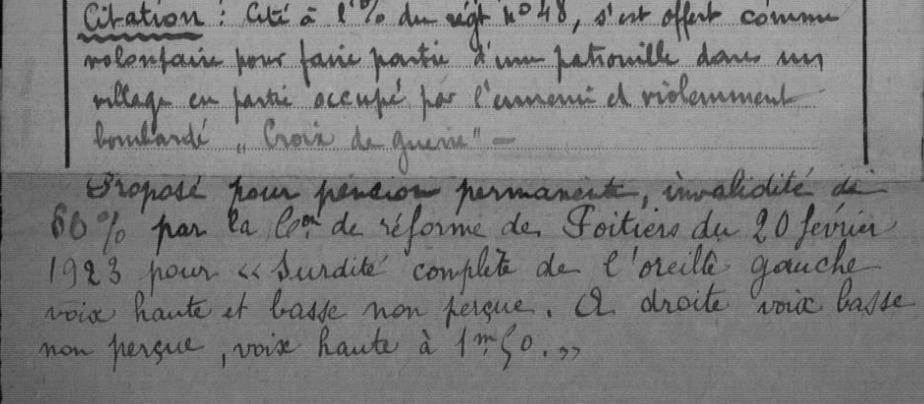 Citation : Cité à l'% du régt n° 48, s'est offert comme
volontaire pour faire partie d'une patrouille dans un
village en partie occupé par l'ennemi et violemment
bombardé „ Croix de guerre" —
Proposé pour pension permanente, invalidité de
60% par la Con de réforme de Poitiers du 20 fevrier
1923 pour « Surdité complète de l'oreille gauche
voix haute et basse non perçue. A droite voix basse
non perçue, voix haute à 1m50. »